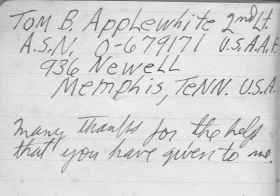 Tom B. Applewhite 2nd Lt.
A.S.N. O-679171 U.S.A.A.F.
936 Newell
Memphis, Tenn. U.S.A.
Many thanks for the help
that you have given to me.